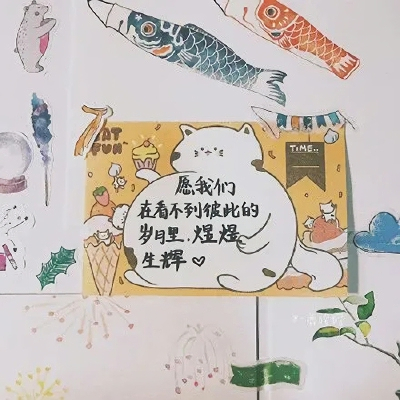 EAT
FUN
TIME..
愿我们
在看不到彼此的
岁月里,煜煜
生辉♡